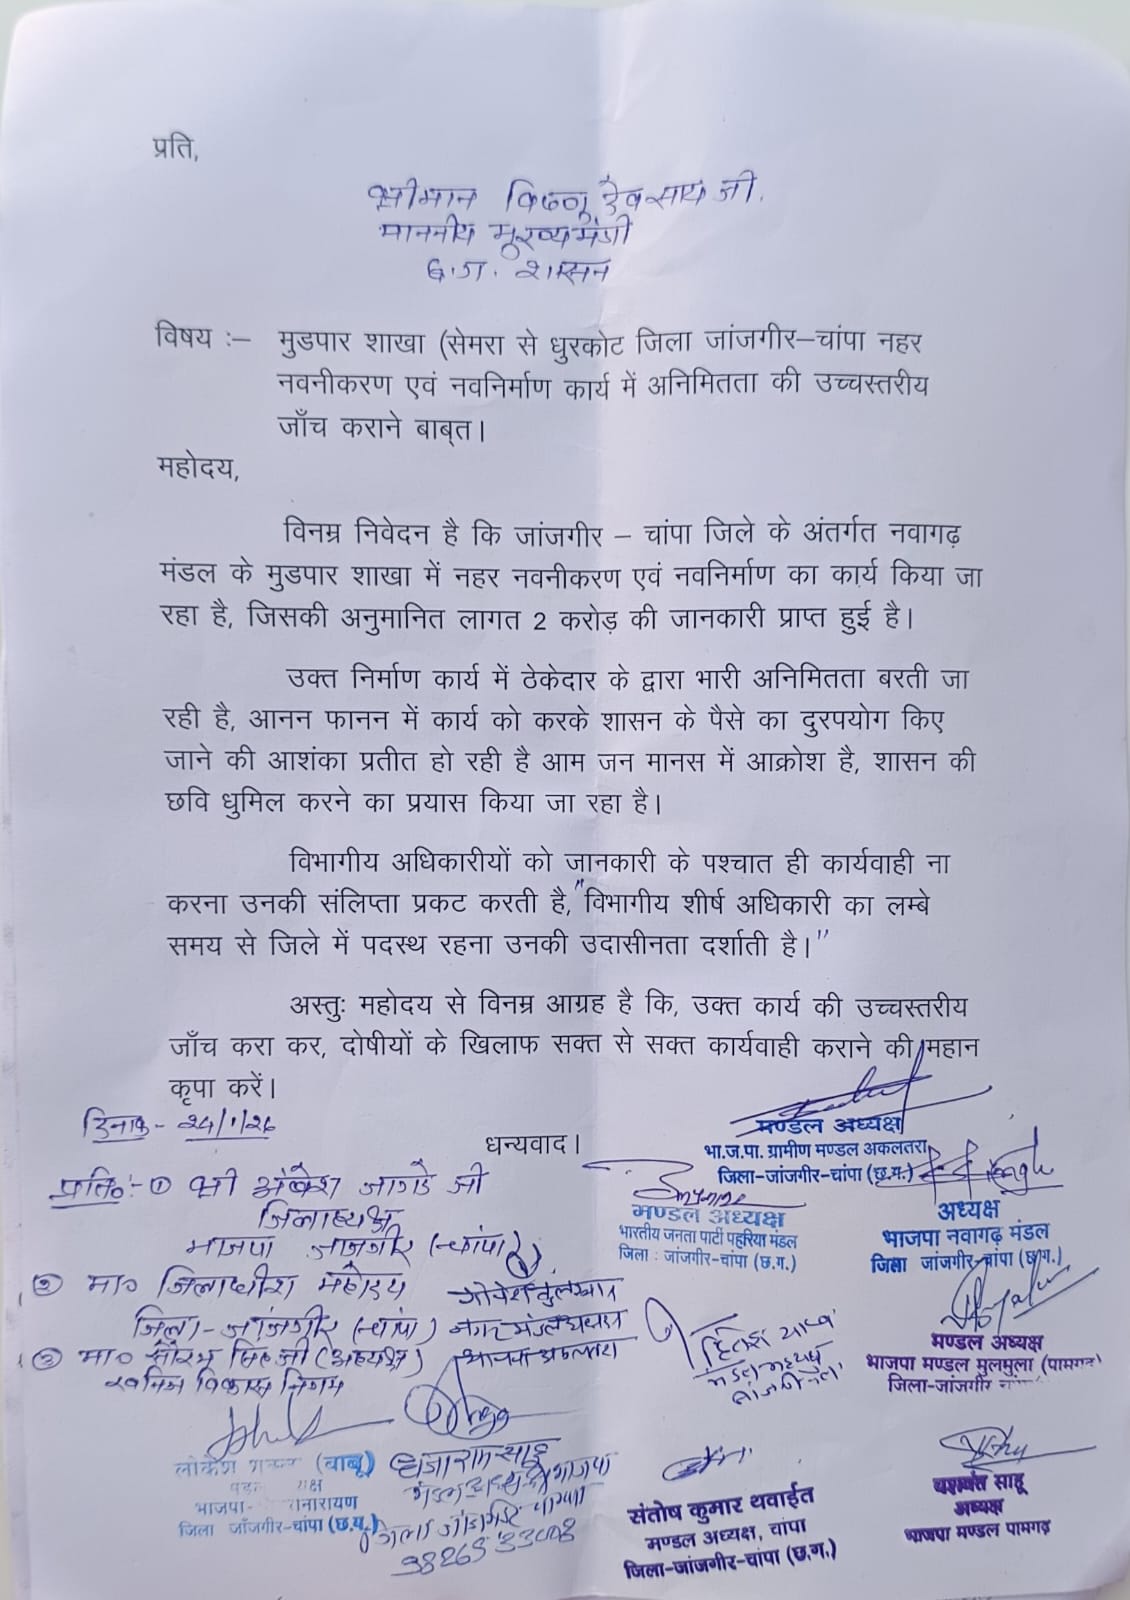 प्रति,
श्रीमान विष्णु देव साय जी.
माननीय मुख्यमंत्री
छ.ग. शासन
विषय :– मुडपार शाखा (सेमरा से धुरकोट जिला जांजगीर–चांपा नहर
नवनीकरण एवं नवनिर्माण कार्य में अनिमितता की उच्चस्तरीय
जाँच कराने बाब्त।
महोदय,
विनम्र निवेदन है कि जांजगीर – चांपा जिले के अंतर्गत नवागढ़
मंडल के मुडपार शाखा में नहर नवनीकरण एवं नवनिर्माण का कार्य किया जा
रहा है, जिसकी अनुमानित लागत 2 करोड़ की जानकारी प्राप्त हुई है।
उक्त निर्माण कार्य में ठेकेदार के द्वारा भारी अनिमितता बरती जा
रही है, आनन फानन में कार्य को करके शासन के पैसे का दुरपयोग किए
जाने की आशंका प्रतीत हो रही है आम जन मानस में आक्रोश है, शासन की
छवि धुमिल करने का प्रयास किया जा रहा है।
विभागीय अधिकारीयों को जानकारी के पश्चात ही कार्यवाही ना
करना उनकी संलिप्ता प्रकट करती है, "विभागीय शीर्ष अधिकारी का लम्बे
समय से जिले में पदस्थ रहना उनकी उदासीनता दर्शाती है।"
अस्तुः महोदय से विनम्र आग्रह है कि, उक्त कार्य की उच्चस्तरीय
जाँच करा कर, दोषीयों के खिलाफ सक्त से सक्त कार्यवाही कराने की महान
कृपा करें।
दिनांक - २४/१/२६
धन्यवाद।
मण्डल अध्यक्ष
भा.ज.पा. ग्रामीण मण्डल अकलतरा
जिला-जांजगीर-चांपा (छ.ग.)
प्रति०:- ① श्री अंबेश जांगडे जी
जिलाध्यक्ष
भाजपा जांजगीर (चांपा)
मण्डल अध्यक्ष
भारतीय जनता पार्टी पहरिया मंडल
जिला : जांजगीर-चांपा (छ.ग.)
अध्यक्ष
भाजपा नवागढ़ मंडल
जिला जांजगीर-चांपा (छ.ग.)
② मा० जिलाधीश महोदय
जिला - जांजगीर (चांपा)
③ मा० सौरभ सिंह जी (अध्यक्ष)
खनिज विकास निगम
मण्डल अध्यक्ष
भाजपा मण्डल मुलमुला (पामगढ़)
जिला-जांजगीर
लोकेश (बाबू)
भाजपा-
जिला जाँजगीर-चांपा (छ.ग.)
धजाराम साहू
भाजपा
जिला जांजगीर चाम्पा
98265 33008
संतोष कुमार थवाईत
मण्डल अध्यक्ष, चांपा
जिला-जांजगीर-चांपा (छ.ग.)
यशवंत साहू
अध्यक्ष
भाजपा मण्डल पामगढ़